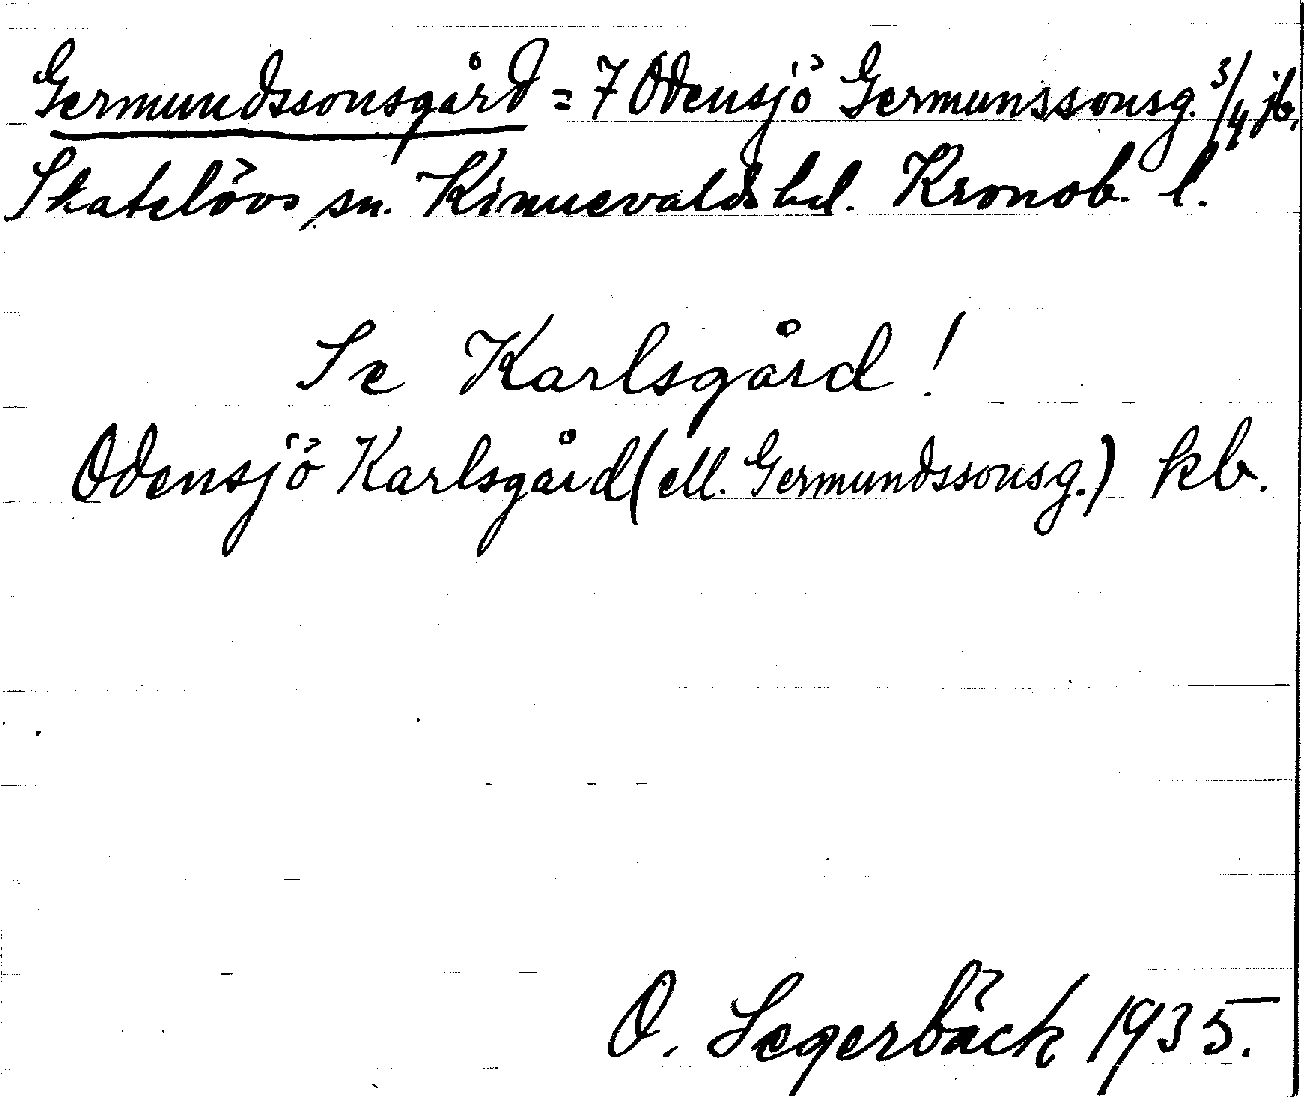 Germundssonsgård = 7 Odensjö Germunssonsg. 3/4 jb.
Skatelövs sn. Kinnevalds hd. Kronob. l.
Se Karlsgård!
Odensjö Karlsgård (ell. Germundssonsg.) kb.
O. Segerbäck 1935.